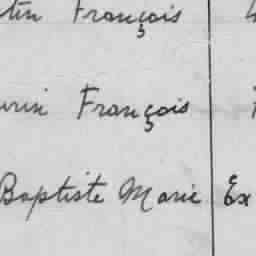 François
François
Baptiste Marie Ex